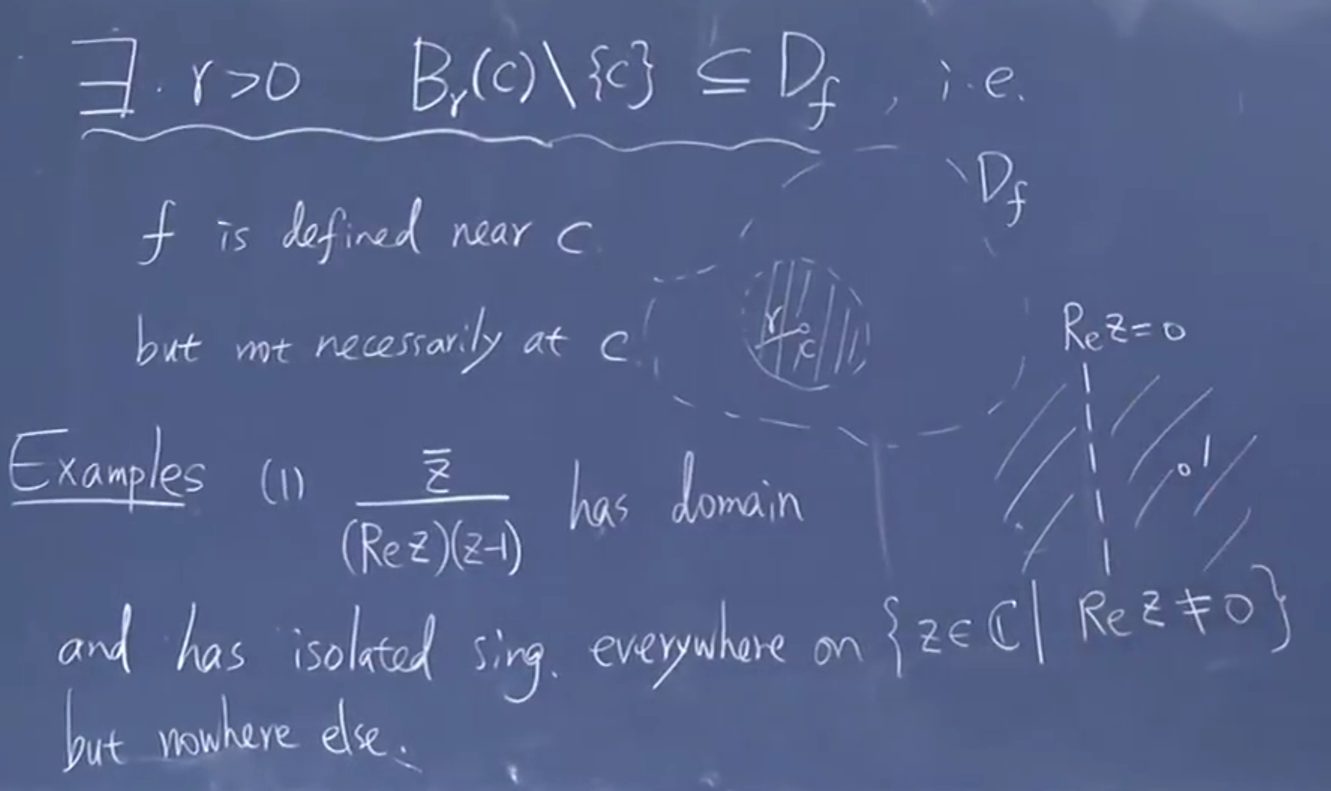 ∃ r>0 B_r(c)\{c} ⊆ D_f , i.e.
D_f
f is defined near c
but not necessarily at c
r c
Re z = 0
1
Examples (1) z̄ / (Re z)(z-1) has domain
and has isolated sing. everywhere on {z∈ℂ| Re z ≠ 0}
but nowhere else.